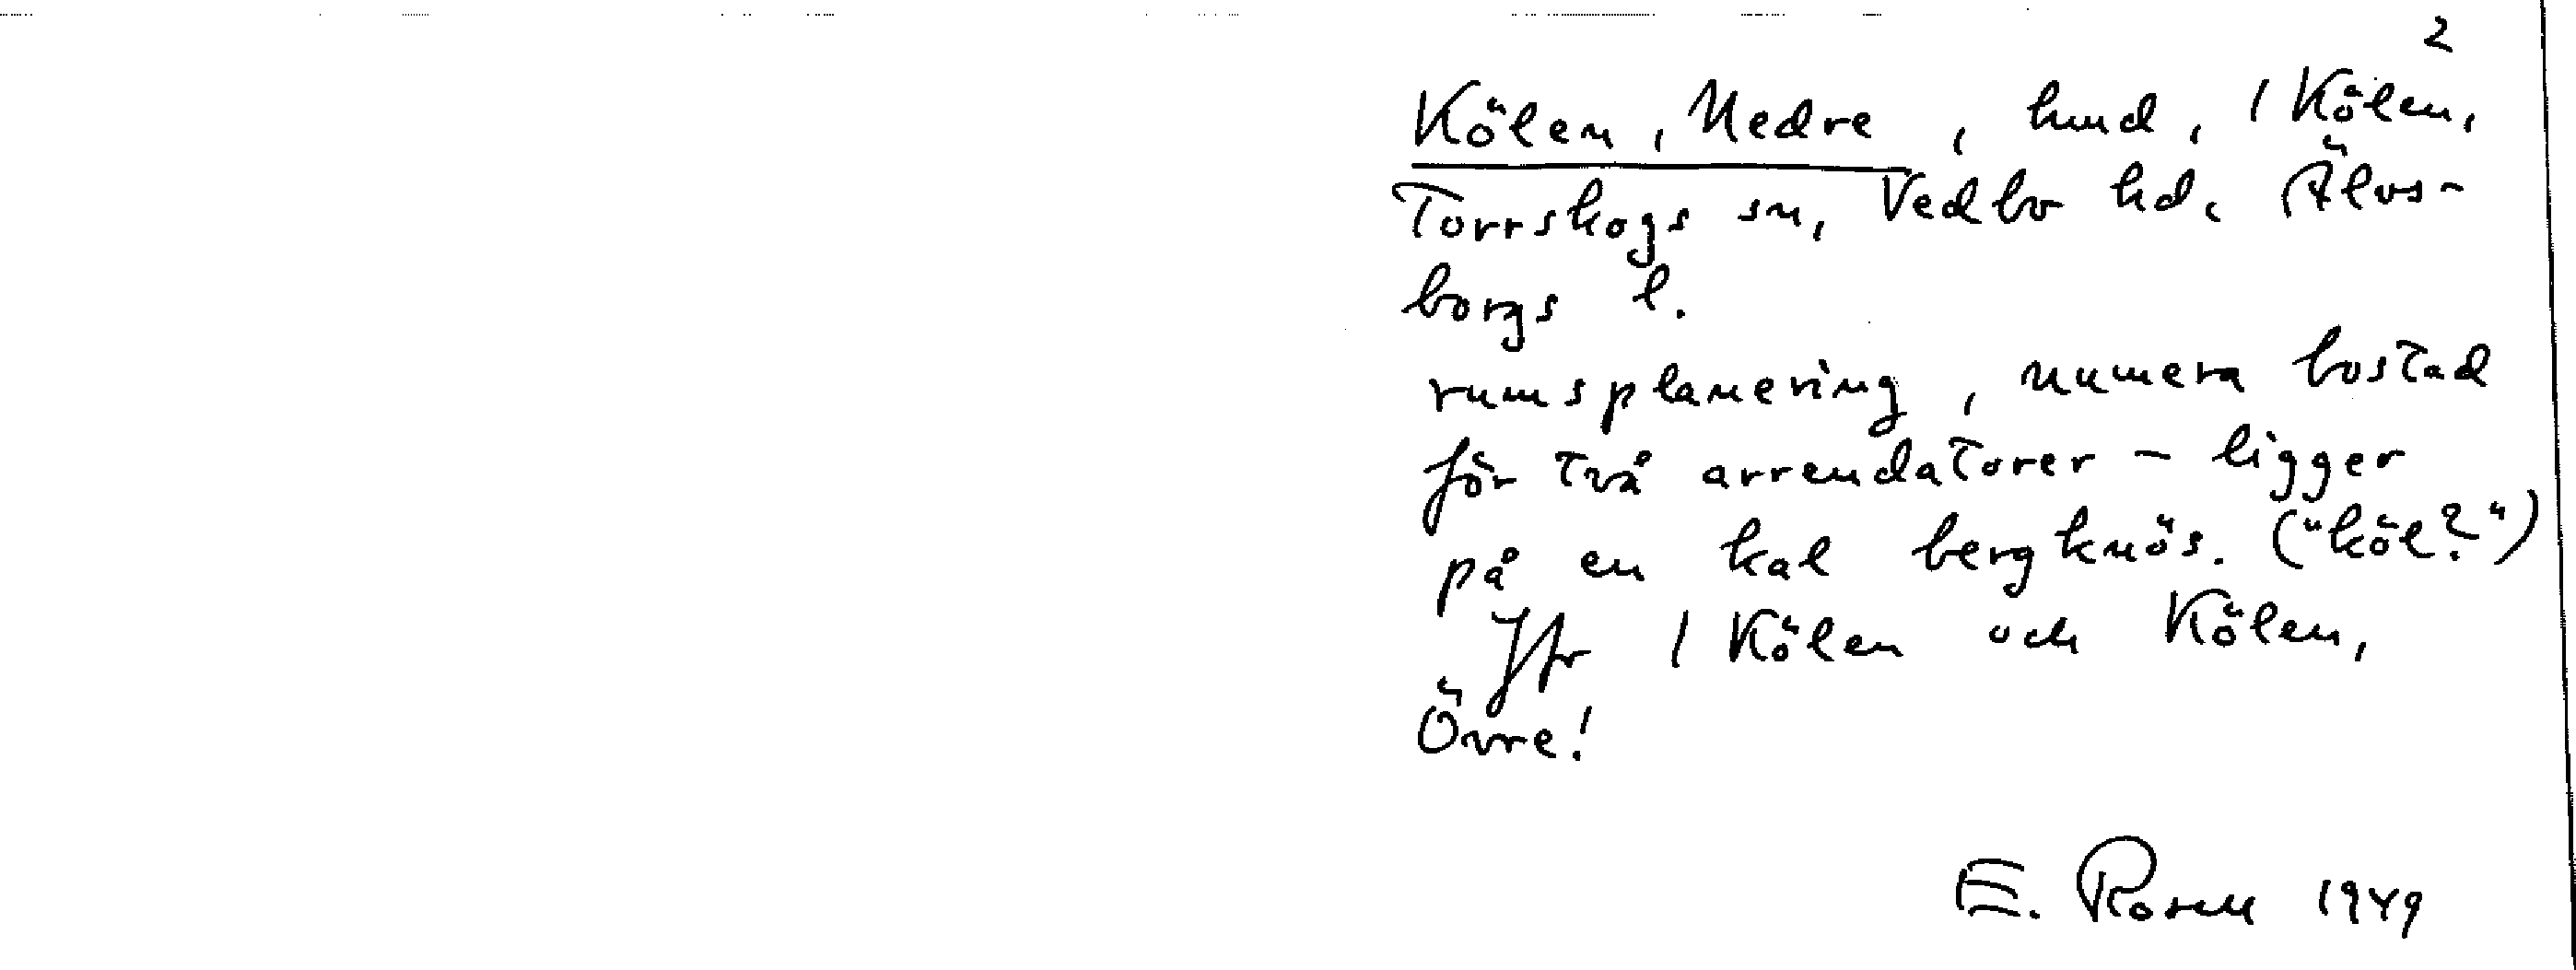 2
Kölen, Nedre, hmd, / Kölen,
Torrskogs sn, Vedbo hd, Älvs-
borgs l.
rumsplanering, numera bostad
för två arrendatorer – ligger
på en kal bergknös. ("köl?")
Jfr / Kölen och Kölen,
Övre!
E. Rosell 1949